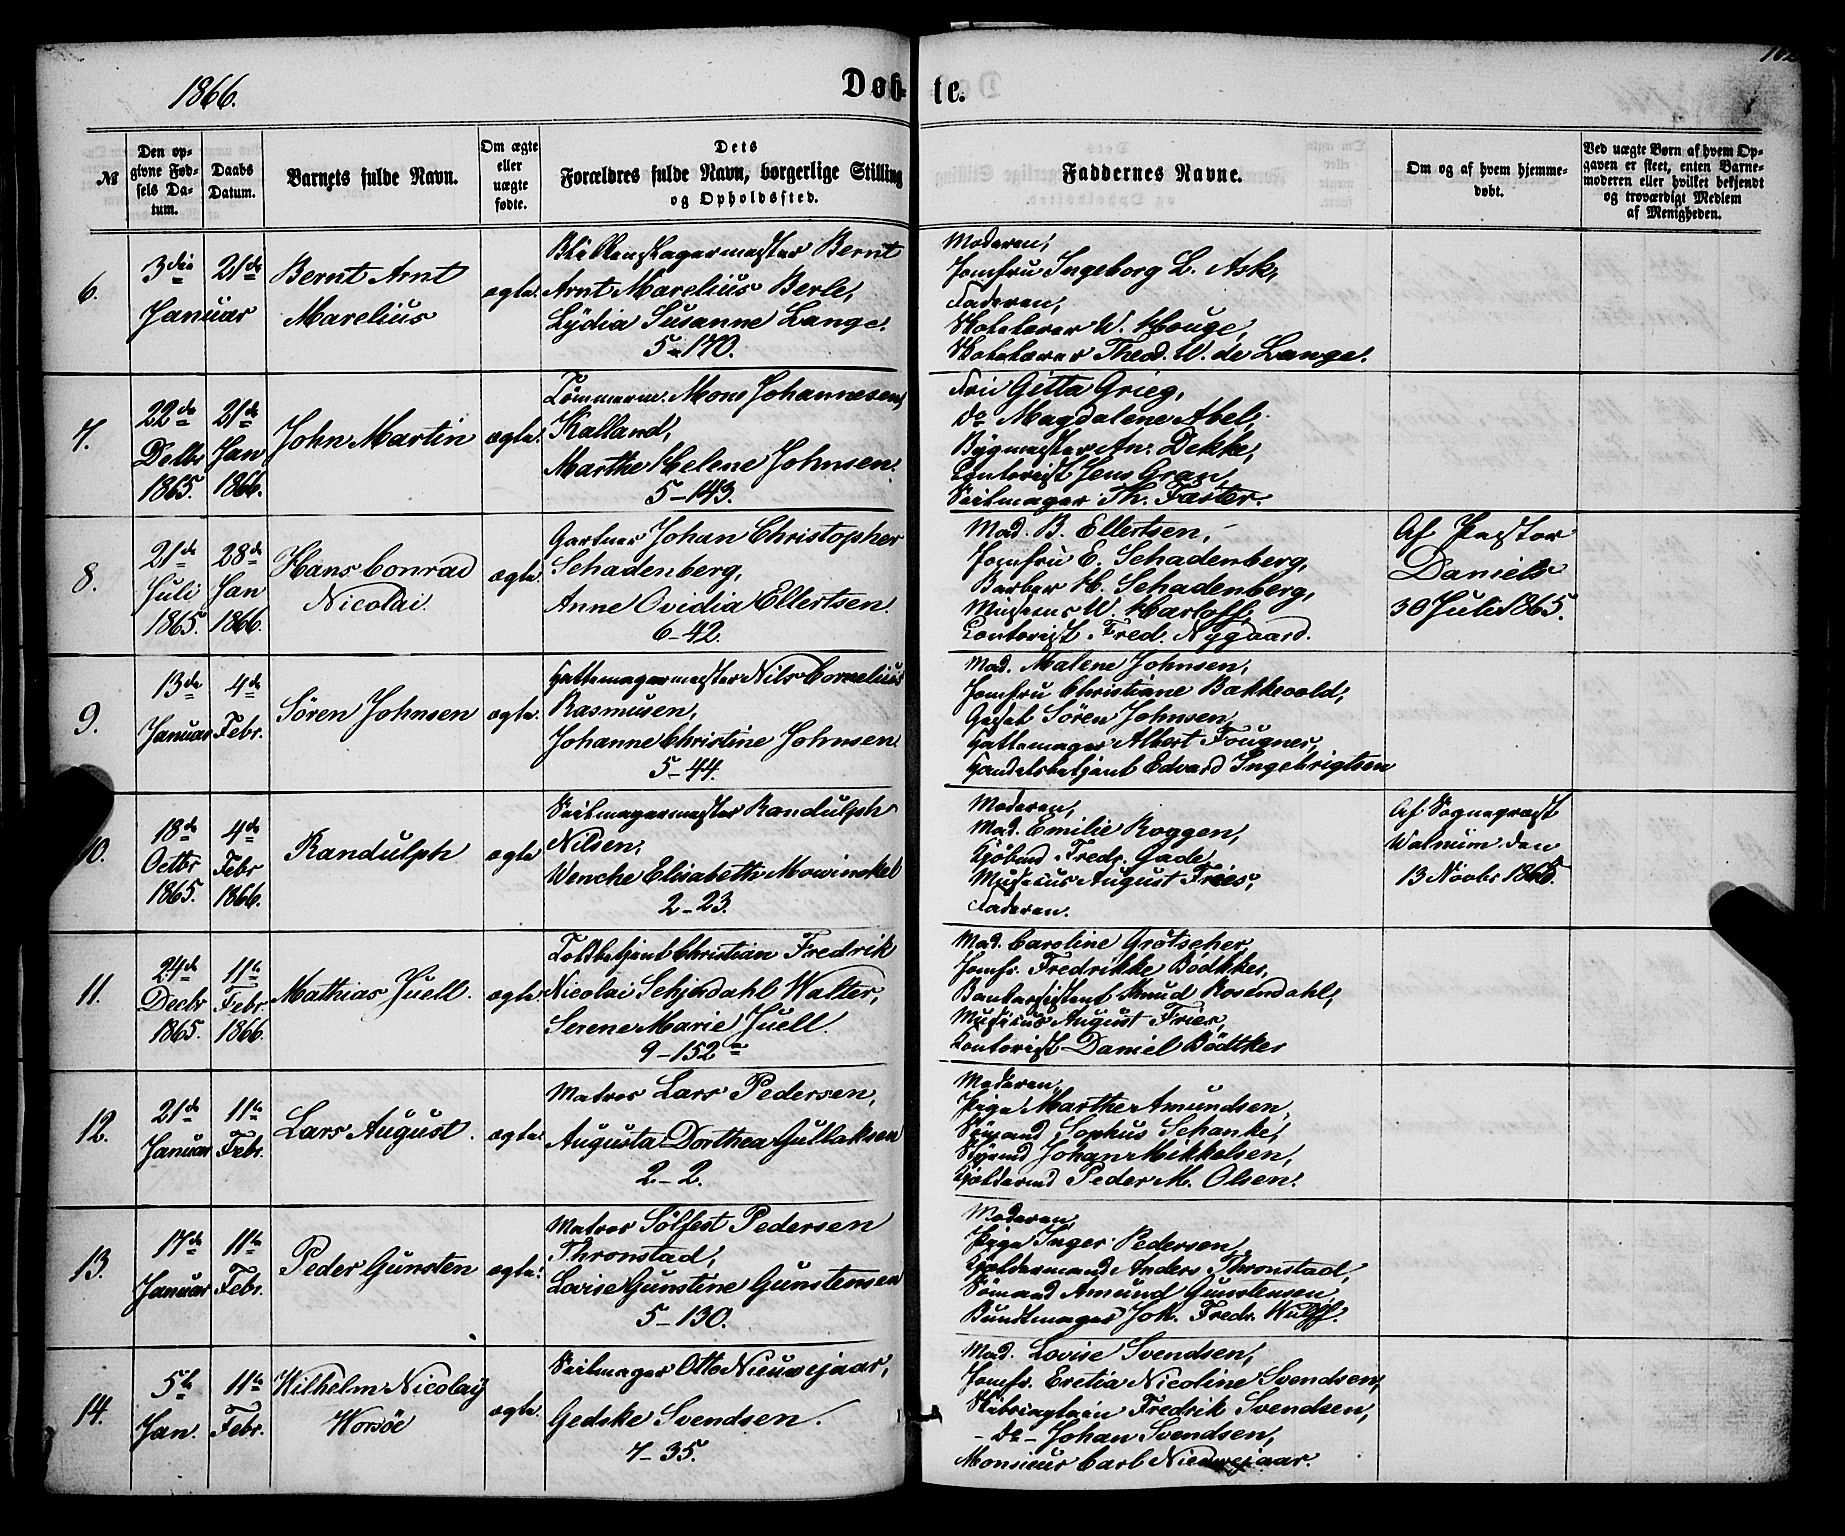 1866.
Døbte.
162
№
Den opgivne Fødsels Datum.
Daabs Datum.
Barnets fulde Navn.
Om ægte eller uægte fødte.
Dets Forældres fulde Navn, borgerlige Stilling og Opholdssted.
Faddernes Navne.
Om og af hvem hjemmedøbt.
Ved uægte Børn af hvem Opgaven er skeet, enten Barnemoderen eller hvilket bekjendt og troværdigt Medlem af Menigheden.
6.
3die Januar
21de
Bernt Arnt
Marelius
ægte.
Blikkenslagermester Bernt
Arnt Marelius Berle,
Lydia Susanne Lange.
5-170.
Moderen,
Jomfru Ingeborg L. Ask,
Faderen,
W. Houge,
Theod. W. de Lange.
7.
22de
Decbr
1865.
21de
Jan
1866.
John Martin
ægte.
Tømmerm. Mons Johannesen
Kalland,
Marthe Helene Johnsen.
5-143.
Frü Gitta Grieg,
do Magdalene Abel,
Bygmester An. Dekke,
Contorist Jens Gran,
Seilmager Th. Faster.
8.
21de
Juli
1865.
28de
Jan
1866.
Hans Conrad
Nicolai.
ægte.
Gartner Johan Christopher
Schadenberg,
Anne Ovidia Ellertsen.
6-42.
Mad. B. Ellertsen,
Jomfru E. Schadenberg,
Barber H. Schadenberg,
Musicus W. Harloff,
Contorist Fred. Nygaard.
Af Pastor
Daniels
30 Juli 1865.
9.
13de
Januar
4de
Febr.
Sören Johnsen
ægte.
Hattemagermester Nils Cornelius
Rasmusen,
Johanne Christine Johnsen.
5-44.
Mad. Malene Johnsen,
Jomfru Christiane Bakkevold,
Sören Johnsen,
Hattemager Albert Fougner,
Handelsbetjent Edvard Ingebrigtsen
10.
18de
Octbr
1865.
4de
Febr
1866.
Randulph
ægte
Seilmagermester Randulph
Nilsen,
Wenche Elisabeth Mowinckel
2-23.
Moderen,
Mad. Emilie Roggen,
Kjöbmd. Fredr. Gade,
Musicus August Fries,
Faderen.
Af Sognepræst
Walnum den
13 Novbr 1865.
11.
24de
Decbr
1865.
11te
Febr.
1866.
Mathias Juell.
ægte
Toldbetjent Christian Fredrik
Nicolai Schjerdahl Walter,
Serene Marie Juell.
9-152a
Mad. Caroline Grötscher,
Jomfr. Fredrikke Bödtker,
Bankassistent Knud Rosendahl,
Musicus August Fries,
Contorist Daniel Bödtker
12.
21de
Januar
11te
Febr.
Lars August.
ægte.
Matros Lars Pedersen,
Augusta Dorthea Gullaksen
2-2.
Moderen,
Pige Marthe Amundsen,
Sömand Sophus Schanke,
Styrmd Johan Mikkelsen,
Peder M. Olsen.
13.
17de
Januar
11te
Febr.
Peder Gunsten
ægte.
Matros Sölfest Pedersen
Thronstad,
Lovise Gunstine Gunstensen
5-130.
Moderen,
Pige Inger Pedersen,
Anders Thronstad,
Sömand Amund Gunstensen,
Buntmager Joh. Fredr. Wulff.
14.
5te
Jan.
11te
Febr.
Wilhelm Nicolay
Worsöe
ægte.
Seilmager Otto Nieuwejaar,
Gedske Svendsen.
7-35.
Mad. Lovise Svendsen,
Jomfr. Eretia Nicoline Svendsen,
Skibscaptain Fredrik Svendsen,
- do - Johan Svendsen,
Monsieur Carl Nieuwejaar.